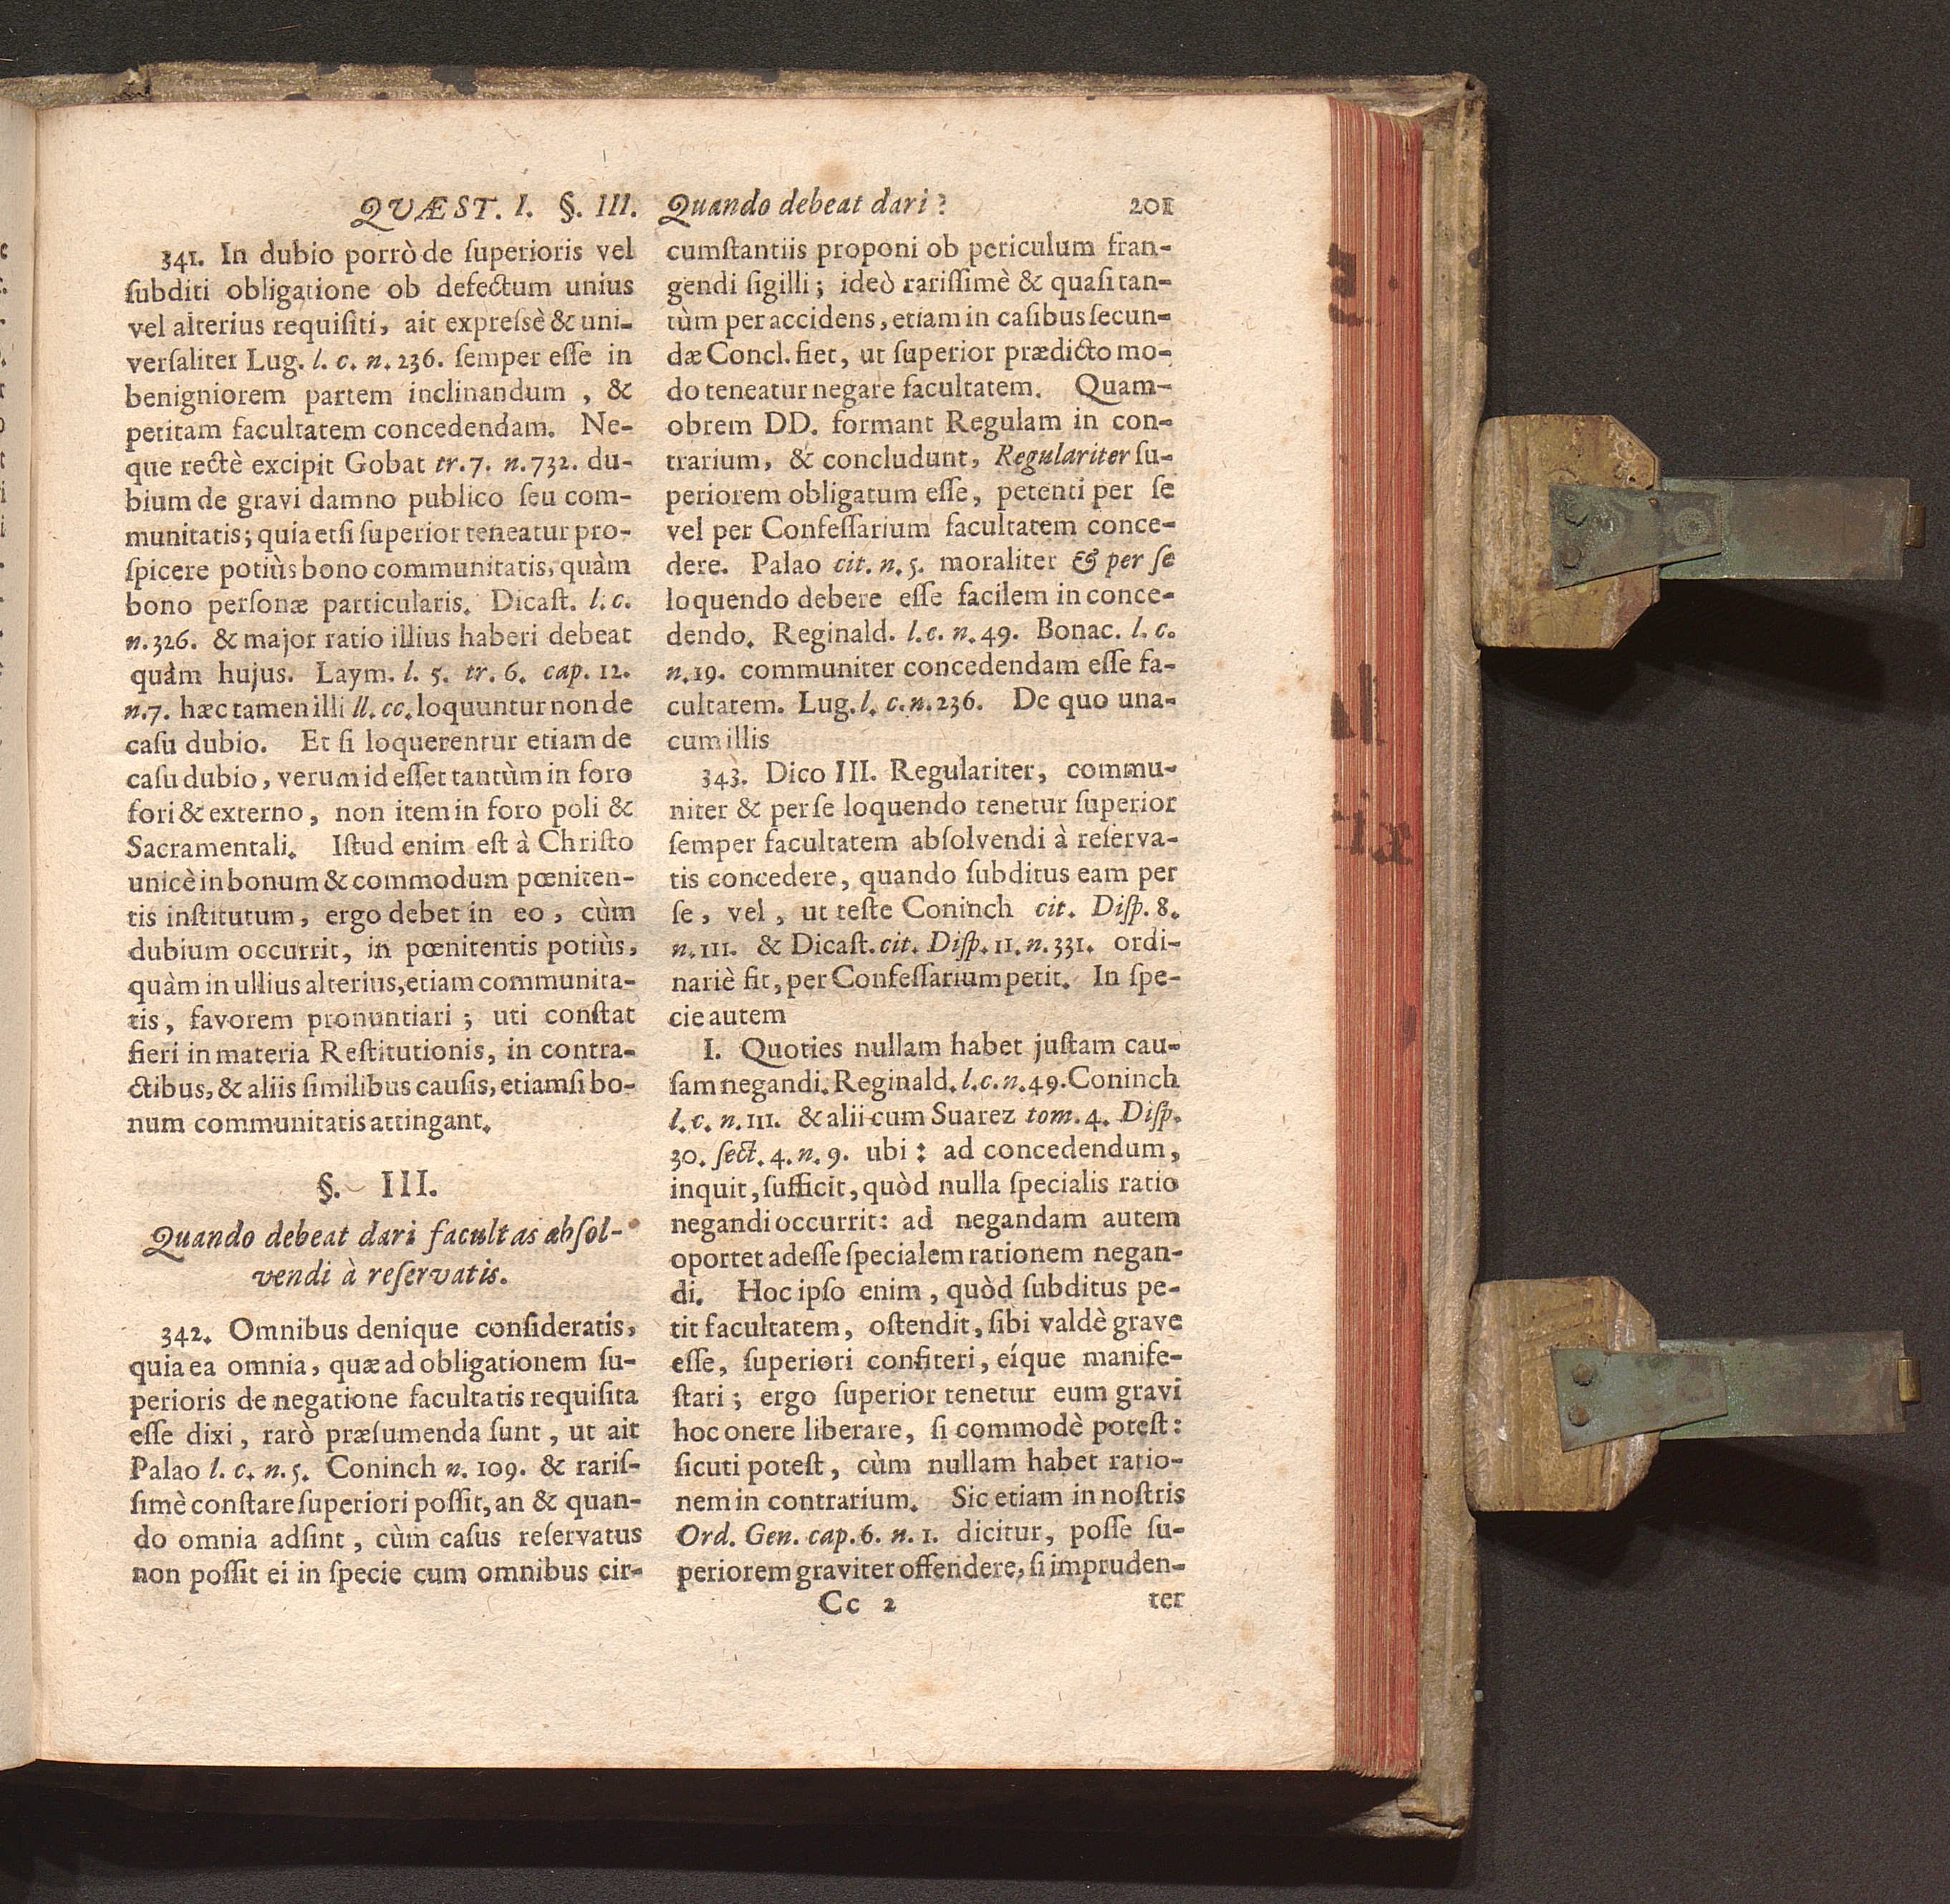 QUÆST. I. §. III. Quando debeat dari? 201
341. In dubio porrò de ſuperioris vel
ſubditi obligatione ob defectum unius
vel alterius requiſiti, ait expreſsè & uni-
verſaliter Lug. l. c. n. 236. ſemper eſſe in
benigniorem partem inclinandum, &
petitam facultatem concedendam. Ne-
que rectè excipit Gobat tr. 7. n. 732. du-
bium de gravi damno publico ſeu com-
munitatis; quia etſi ſuperior teneatur pro-
ſpicere potiùs bono communitatis, quàm
bono perſonæ particularis. Dicaſt. l. c.
n. 326. & major ratio illius haberi debeat
quàm hujus. Laym. l. 5. tr. 6. cap. 12.
n. 7. hæc tamen illi ll. cc. loquuntur non de
caſu dubio. Et ſi loquerentur etiam de
caſu dubio, verum id eſſet tantùm in foro
fori & externo, non item in foro poli &
Sacramentali. Iſtud enim eſt à Chriſto
unicè in bonum & commodum pœniten-
tis inſtitutum, ergo debet in eo, cùm
dubium occurrit, in pœnitentis potiùs,
quàm in ullius alterius, etiam communita-
tis, favorem pronuntiari; uti conſtat
fieri in materia Reſtitutionis, in contra-
ctibus, & aliis ſimilibus cauſis, etiamſi bo-
num communitatis attingant.
§. III.
Quando debeat dari facultas abſol-
vendi à reſervatis.
342. Omnibus denique conſideratis,
quia ea omnia, quæ ad obligationem ſu-
perioris de negatione facultatis requiſita
eſſe dixi, rarò præſumenda ſunt, ut ait
Palao l. c. n. 5. Coninch n. 109. & rariſ-
ſimè conſtare ſuperiori poſſit, an & quan-
do omnia adſint, cùm caſus reſervatus
non poſſit ei in ſpecie cum omnibus cir-
cumſtantiis proponi ob periculum fran-
gendi ſigilli; ideò rariſſimè & quaſi tan-
tùm per accidens, etiam in caſibus ſecun-
dæ Concl. fiet, ut ſuperior prædicto mo-
do teneatur negare facultatem. Quam-
obrem DD. formant Regulam in con-
trarium, & concludunt, Regulariter ſu-
periorem obligatum eſſe, petenti per ſe
vel per Confeſſarium facultatem conce-
dere. Palao cit. n. 5. moraliter & per ſe
loquendo debere eſſe facilem in conce-
dendo. Reginald. l. c. n. 49. Bonac. l. c.
n. 19. communiter concedendam eſſe fa-
cultatem. Lug. l. c. n. 236. De quo una-
cum illis
343. Dico III. Regulariter, commu-
niter & per ſe loquendo tenetur ſuperior
ſemper facultatem abſolvendi à reſerva-
tis concedere, quando ſubditus eam per
ſe, vel, ut teſte Coninch cit. Diſp. 8.
n. 111. & Dicaſt. cit. Diſp. 11. n. 331. ordi-
nariè fit, per Confeſſarium petit. In ſpe-
cie autem
I. Quoties nullam habet juſtam cau-
ſam negandi. Reginald. l. c. n. 49. Coninch
l. c. n. 111. & alii cum Suarez tom. 4. Diſp.
30. ſect. 4. n. 9. ubi: ad concedendum,
inquit, ſufficit, quòd nulla ſpecialis ratio
negandi occurrit: ad negandam autem
oportet adeſſe ſpecialem rationem negan-
di. Hoc ipſo enim, quòd ſubditus pe-
tit facultatem, oſtendit, ſibi valdè grave
eſſe, ſuperiori confiteri, eíque manife-
ſtari; ergo ſuperior tenetur eum gravi
hoc onere liberare, ſi commodè poteſt:
ſicuti poteſt, cùm nullam habet ratio-
nem in contrarium. Sic etiam in noſtris
Ord. Gen. cap. 6. n. 1. dicitur, poſſe ſu-
periorem graviter offendere, ſi impruden-
Cc 2 ter